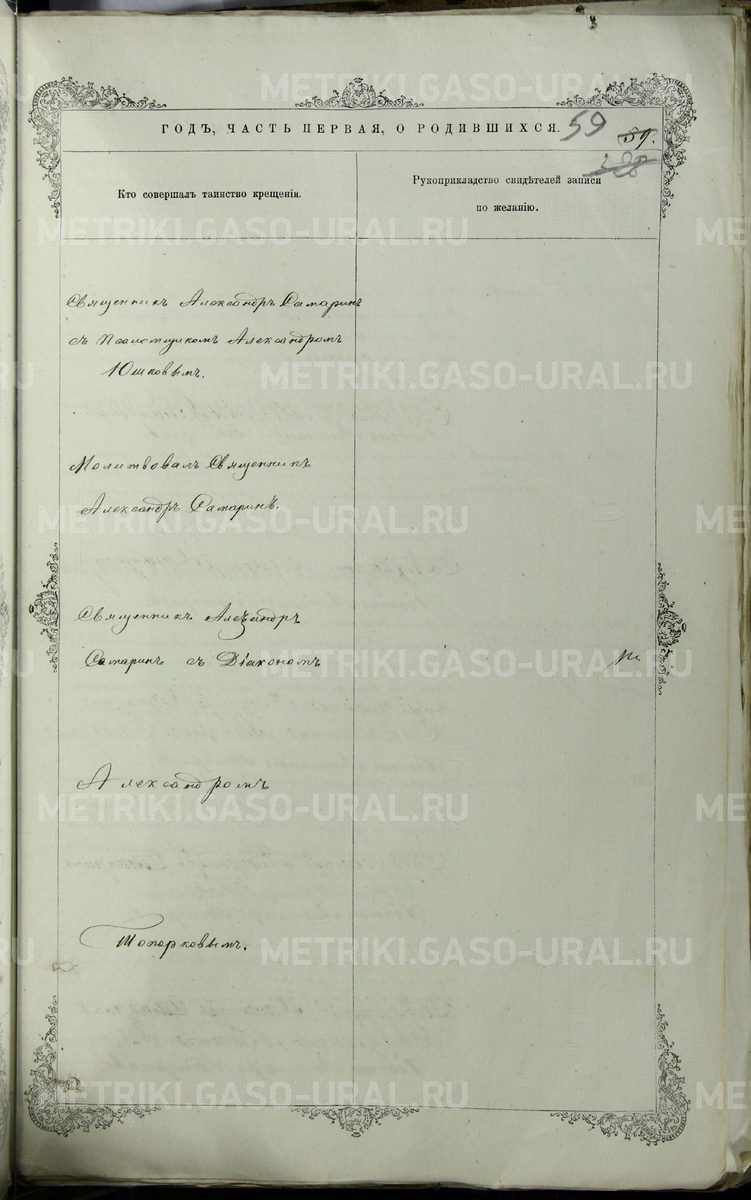 ГОДЪ, ЧАСТЬ ПЕРВАЯ, О РОДИВШИХСЯ. 59 59.
328
Кто совершалъ таинство крещенія.
Рукоприкладство свидѣтелей записи
по желанію.
Священникъ Александръ Самаринъ
съ Псаломщикомъ Александромъ
Юшковымъ.
Молитвовалъ Священникъ
Александръ Самаринъ.
Священникъ Александръ
Самаринъ съ Діакономъ
Александромъ
Топорковымъ.
METRIKI.GASO-URAL.RU